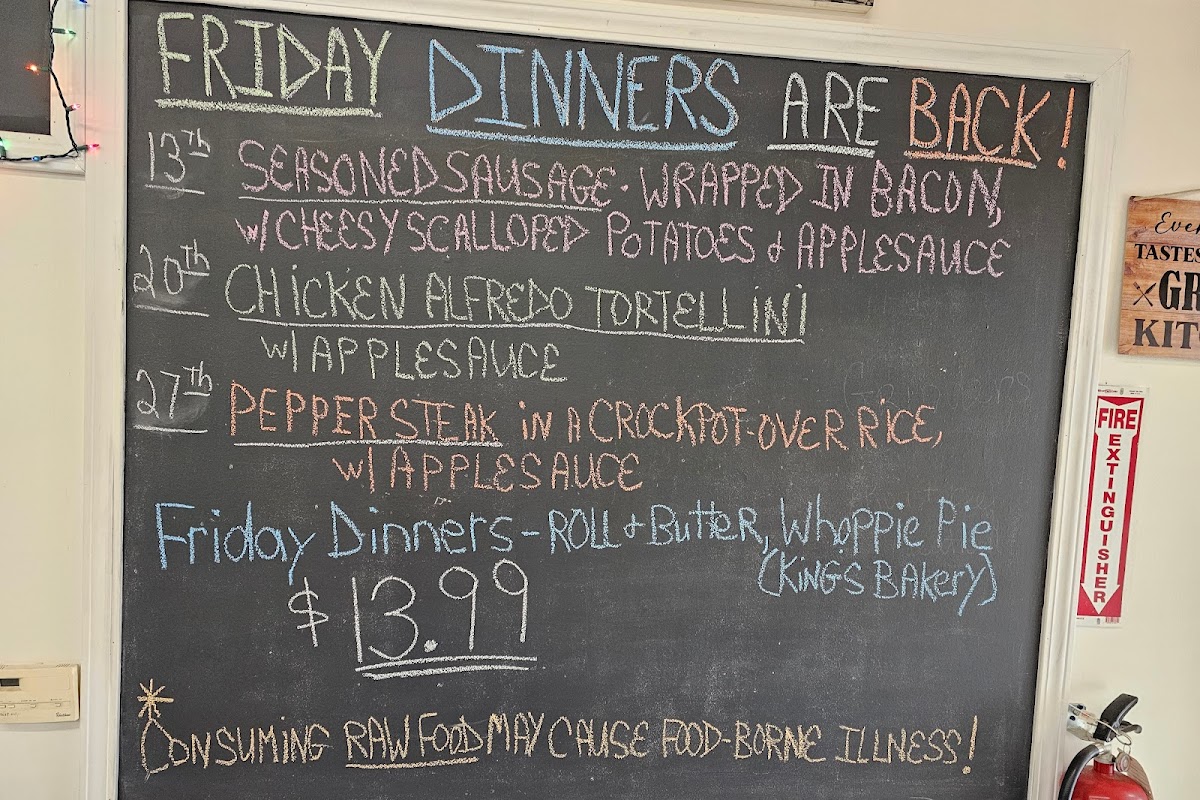 FRIDAY DINNERS ARE BACK!
13th SEASONED SAUSAGE - WRAPPED IN BACON,
w/ CHEESY SCALLOPED POTATOES & APPLESAUCE
20th CHICKEN ALFREDO TORTELLINI
w/ APPLESAUCE
27th PEPPER STEAK IN A CROCKPOT-OVER RICE,
w/ APPLESAUCE
Friday Dinners - ROLL & Butter, Whoppie Pie
(KiNG'S BAKery)
$13.99
*CONSUMING RAW FOOD MAY CAUSE FOOD-BORNE ILLNESS!
TASTES
FIRE
EXTINGUISHER